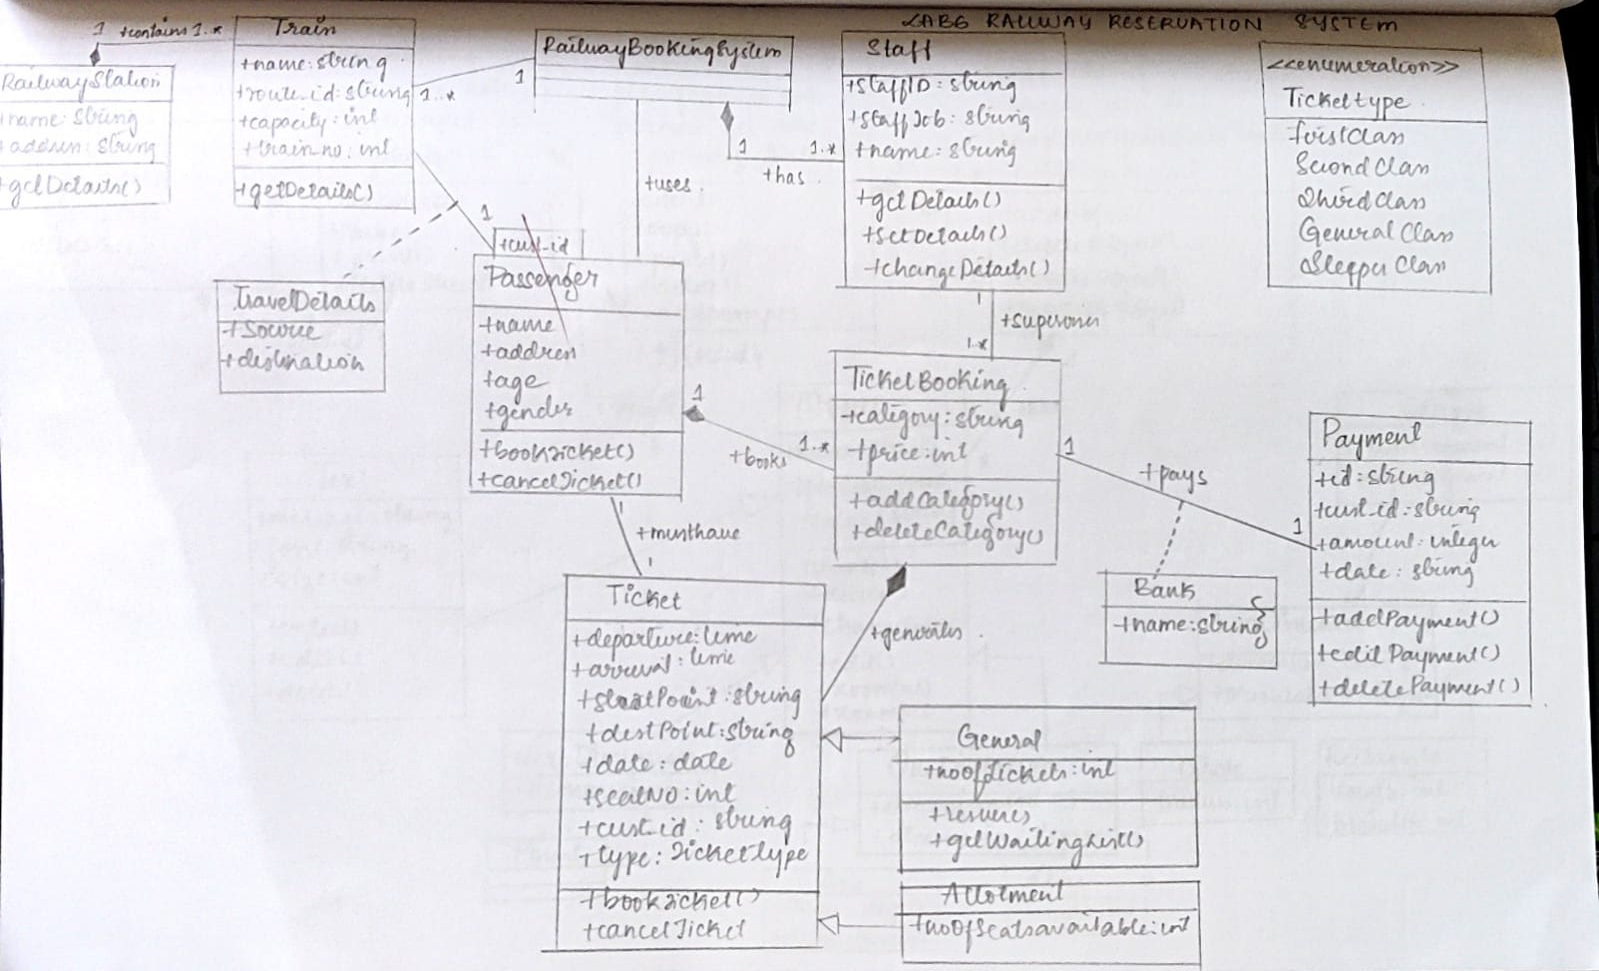 LAB6 RAILWAY RESERVATION SYSTEM
1 +contains 1..*
RailwayStation
+name: string
+address: string
+getDetails()
Train
+name: string
+route_id: string
+capacity: int
+train_no: int
+getDetails()
1..*
1
RailwayBookingSystem
+uses
1
1..*
+has
Staff
+StaffID: string
+StaffJob: string
+name: string
+getDetails()
+setDetails()
+changeDetails()
<<enumeration>>
Tickettype
firstClass
SecondClass
ThirdClass
General Class
Sleeper Class
1
+cust_id
TravelDetails
+Source
+destination
Passenger
+name
+address
+age
+gender
+bookTicket()
+cancelTicket()
1
+supervises
1..*
1
+books
1..*
TicketBooking
+category: string
+price: int
+addCategory()
+deleteCategory()
1
+pays
1
Payment
+id: string
+cust_id: string
+amount: integer
+date: string
+addPayment()
+editPayment()
+deletePayment()
Bank
+name: string
1
+musthave
1
Ticket
+departure: time
+arrival: time
+startPoint: string
+destPoint: string
+date: date
+seatNO: int
+cust_id: string
+type: Tickettype
+bookTicket()
+cancelTicket
+generates
General
+noofTickets: int
+getWaitingList()
Allotment
+noOfSeatsavailable: int